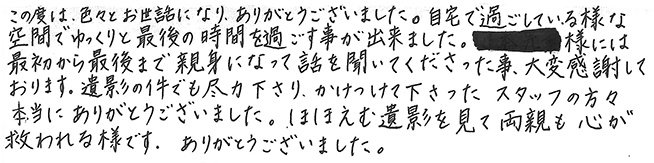 この度は、色々とお世話になり、ありがとうございました。自宅で過ごしている様な
空間でゆっくりと最後の時間を過ごす事が出来ました。様には
最初から最後まで親身になって話を聞いてくださった事、大変感謝して
おります。遺影の件でも尽力下さり、かけつけて下さった スタッフの方々
本当にありがとうございました。ほほえむ遺影を見て両親も心が
救われる様です. ありがとうございました。